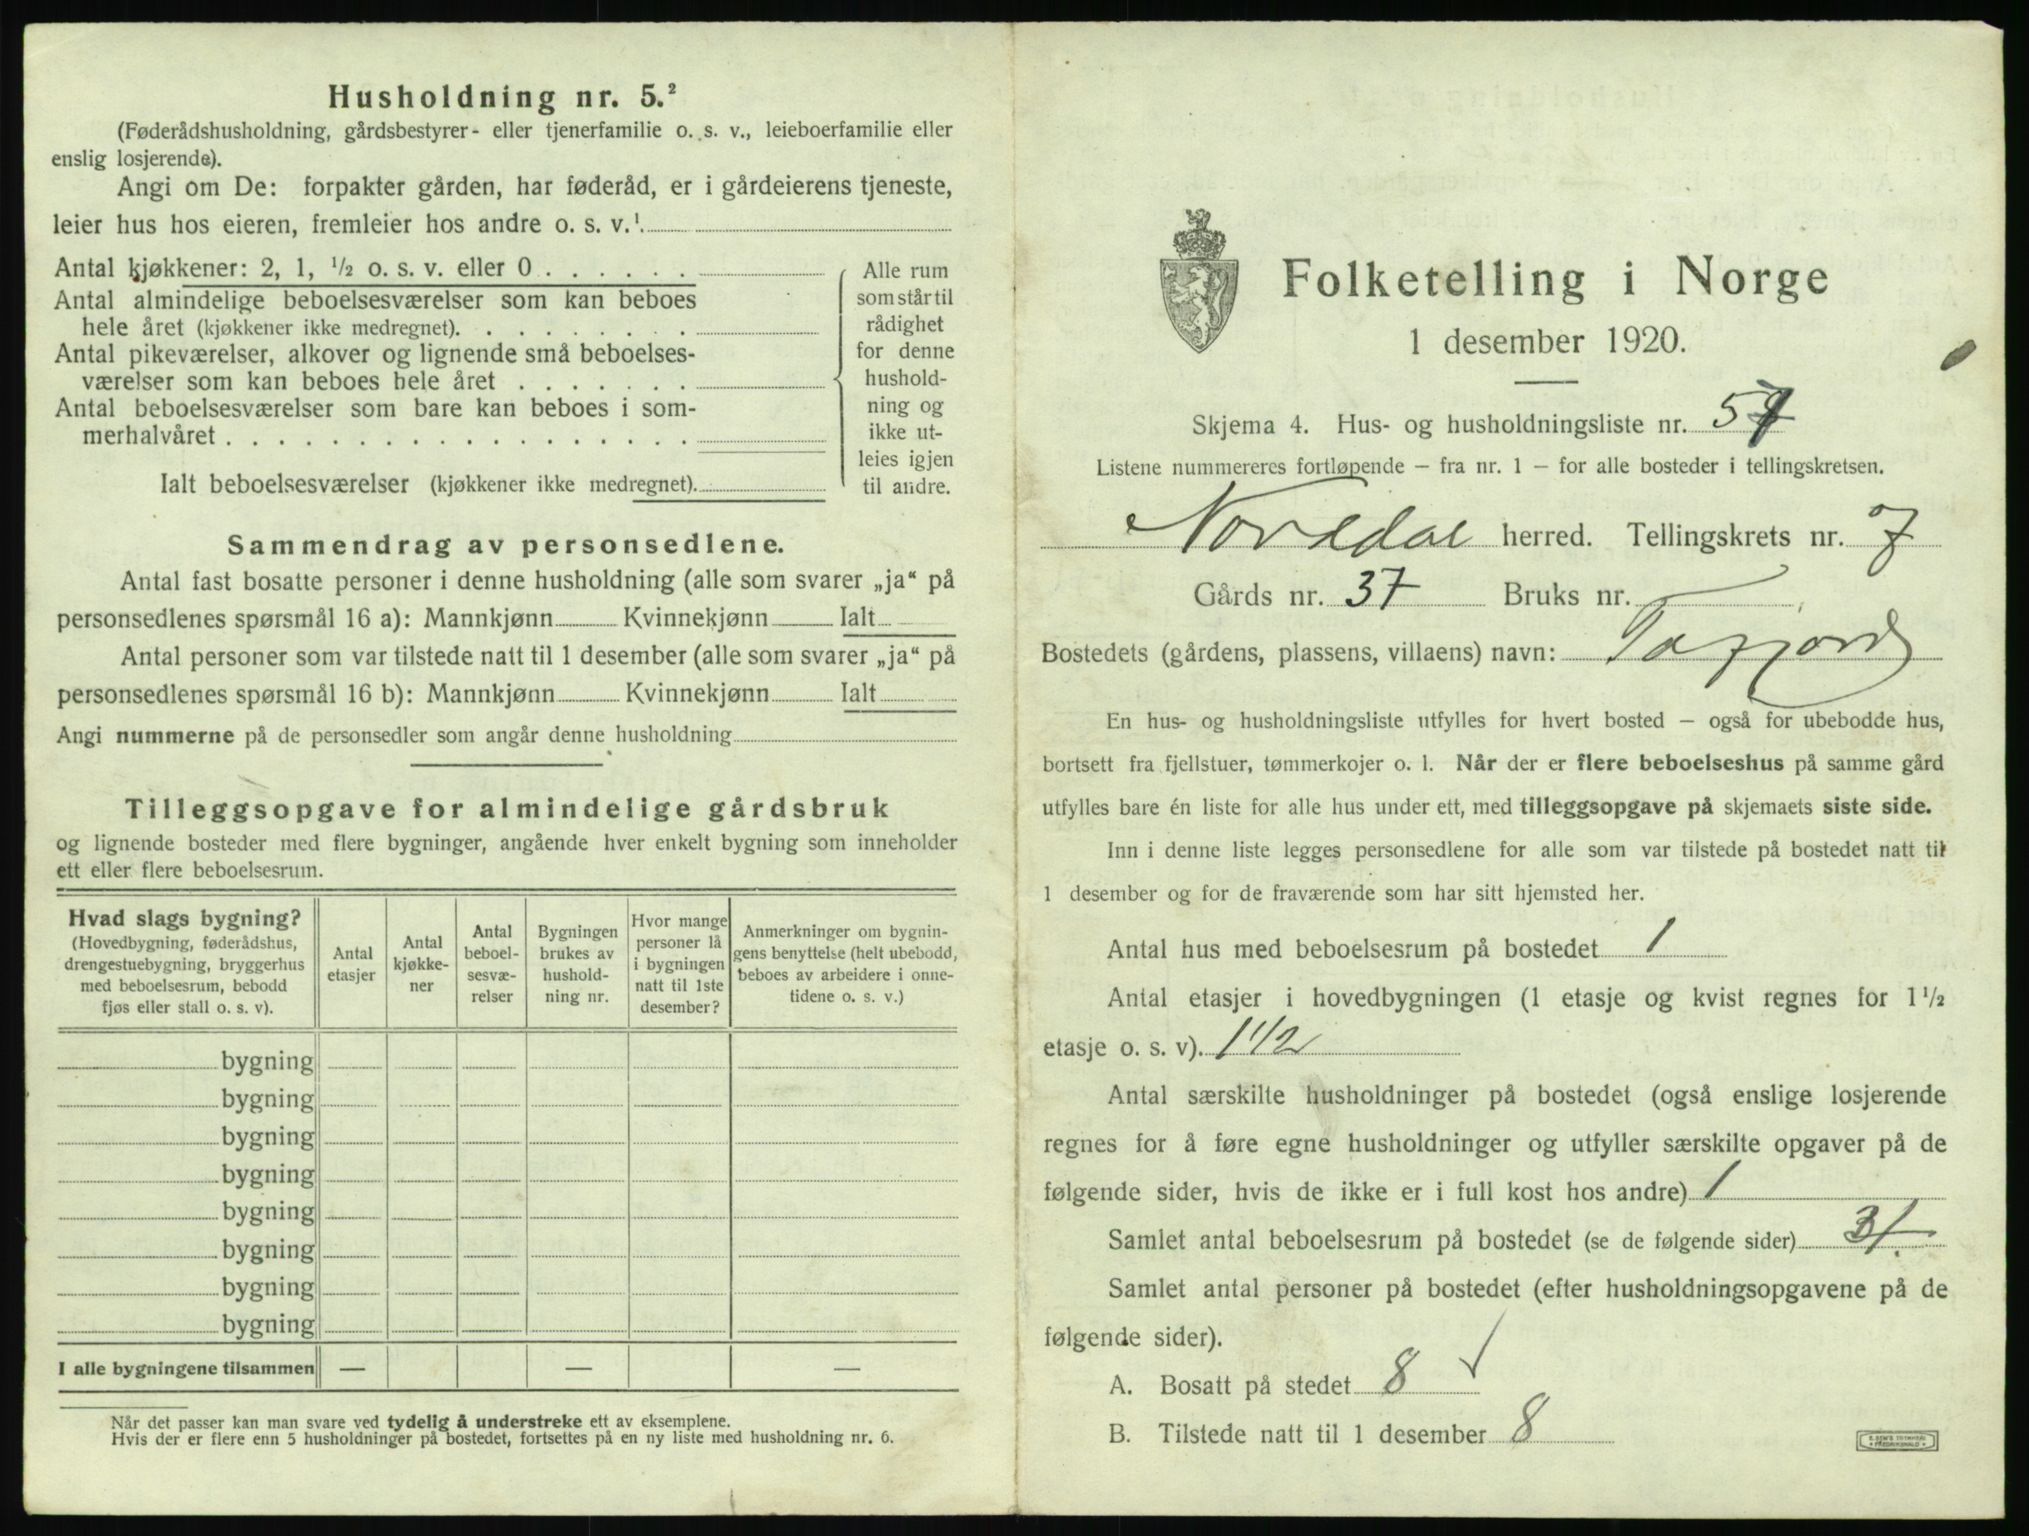 Husholdning nr. 5.²
(Føderådshusholdning, gårdsbestyrer- eller tjenerfamilie o. s. v., leieboerfamilie eller
enslig losjerende).
Angi om De: forpakter gården, har føderåd, er i gårdeierens tjeneste,
leier hus hos eieren, fremleier hos andre o. s. v.¹
Antal kjøkkener: 2, 1, ½ o. s. v. eller 0 . . . . . .
Antal almindelige beboelsesværelser som kan beboes
hele året (kjøkkener ikke medregnet). . . . . . . . .
Antal pikeværelser, alkover og lignende små beboelses-
værelser som kan beboes hele året . . . . . . .
Antal beboelsesværelser som bare kan beboes i som-
merhalvåret . . . . . . . . . . . . . . . . . .
Ialt beboelsesværelser (kjøkkener ikke medregnet).
Alle rum
som står til
rådighet
for denne
hushold-
ning og
ikke ut-
leies igjen
til andre.
Sammendrag av personsedlene.
Antal fast bosatte personer i denne husholdning (alle som svarer „ja“ på
personsedlenes spørsmål 16 a): Mannkjønn Kvinnekjønn Ialt
Antal personer som var tilstede natt til 1 desember (alle som svarer „ja“ på
personsedlenes spørsmål 16 b): Mannkjønn Kvinnekjønn Ialt
Angi nummerne på de personsedler som angår denne husholdning
Tilleggsopgave for almindelige gårdsbruk
og lignende bosteder med flere bygninger, angående hver enkelt bygning som inneholder
ett eller flere beboelsesrum.
Hvad slags bygning?
(Hovedbygning, føderådshus,
drengestuebygning, bryggerhus
med beboelsesrum, bebodd
fjøs eller stall o. s. v).
Antal
etasjer
Antal
kjøkke-
ner
Antal
beboel-
sesvæ-
relser
Bygningen
brukes av
hushold-
ning nr.
Hvor mange
personer lå
i bygningen
natt til 1ste
desember?
Anmerkninger om bygnin-
gens benyttelse (helt ubebodd,
beboes av arbeidere i onne-
tidene o. s. v.)
bygning
bygning
bygning
bygning
bygning
bygning
bygning
bygning
I alle bygningene tilsammen — — —
Når det passer kan man svare ved tydelig å understreke ett av eksemplene.
Hvis der er flere enn 5 husholdninger på bostedet, fortsettes på en ny liste med husholdning nr. 6.
Folketelling i Norge
1 desember 1920.
Skjema 4. Hus- og husholdningsliste nr.
Listene nummereres fortløpende – fra nr. 1 – for alle bosteder i tellingskretsen.
Norddal herred. Tellingskrets nr. 7
Gårds nr. 37 Bruks nr.
Bostedets (gårdens, plassens, villaens) navn: Tafjord
En hus- og husholdningsliste utfylles for hvert bosted – også for ubebodde hus,
bortsett fra fjellstuer, tømmerkojer o. l. Når der er flere beboelseshus på samme gård
utfylles bare én liste for alle hus under ett, med tilleggsopgave på skjemaets siste side.
Inn i denne liste legges personsedlene for alle som var tilstede på bostedet natt til
1 desember og for de fraværende som har sitt hjemsted her.
Antal hus med beboelsesrum på bostedet 1
Antal etasjer i hovedbygningen (1 etasje og kvist regnes for 1½
etasje o. s. v). 1 1/2
Antal særskilte husholdninger på bostedet (også enslige losjerende
regnes for å føre egne husholdninger og utfyller særskilte opgaver på de
følgende sider, hvis de ikke er i full kost hos andre) 1
Samlet antal beboelsesrum på bostedet (se de følgende sider)
Samlet antal personer på bostedet (efter husholdningsopgavene på de
følgende sider).
A. Bosatt på stedet 8 ✓
B. Tilstede natt til 1 desember 8